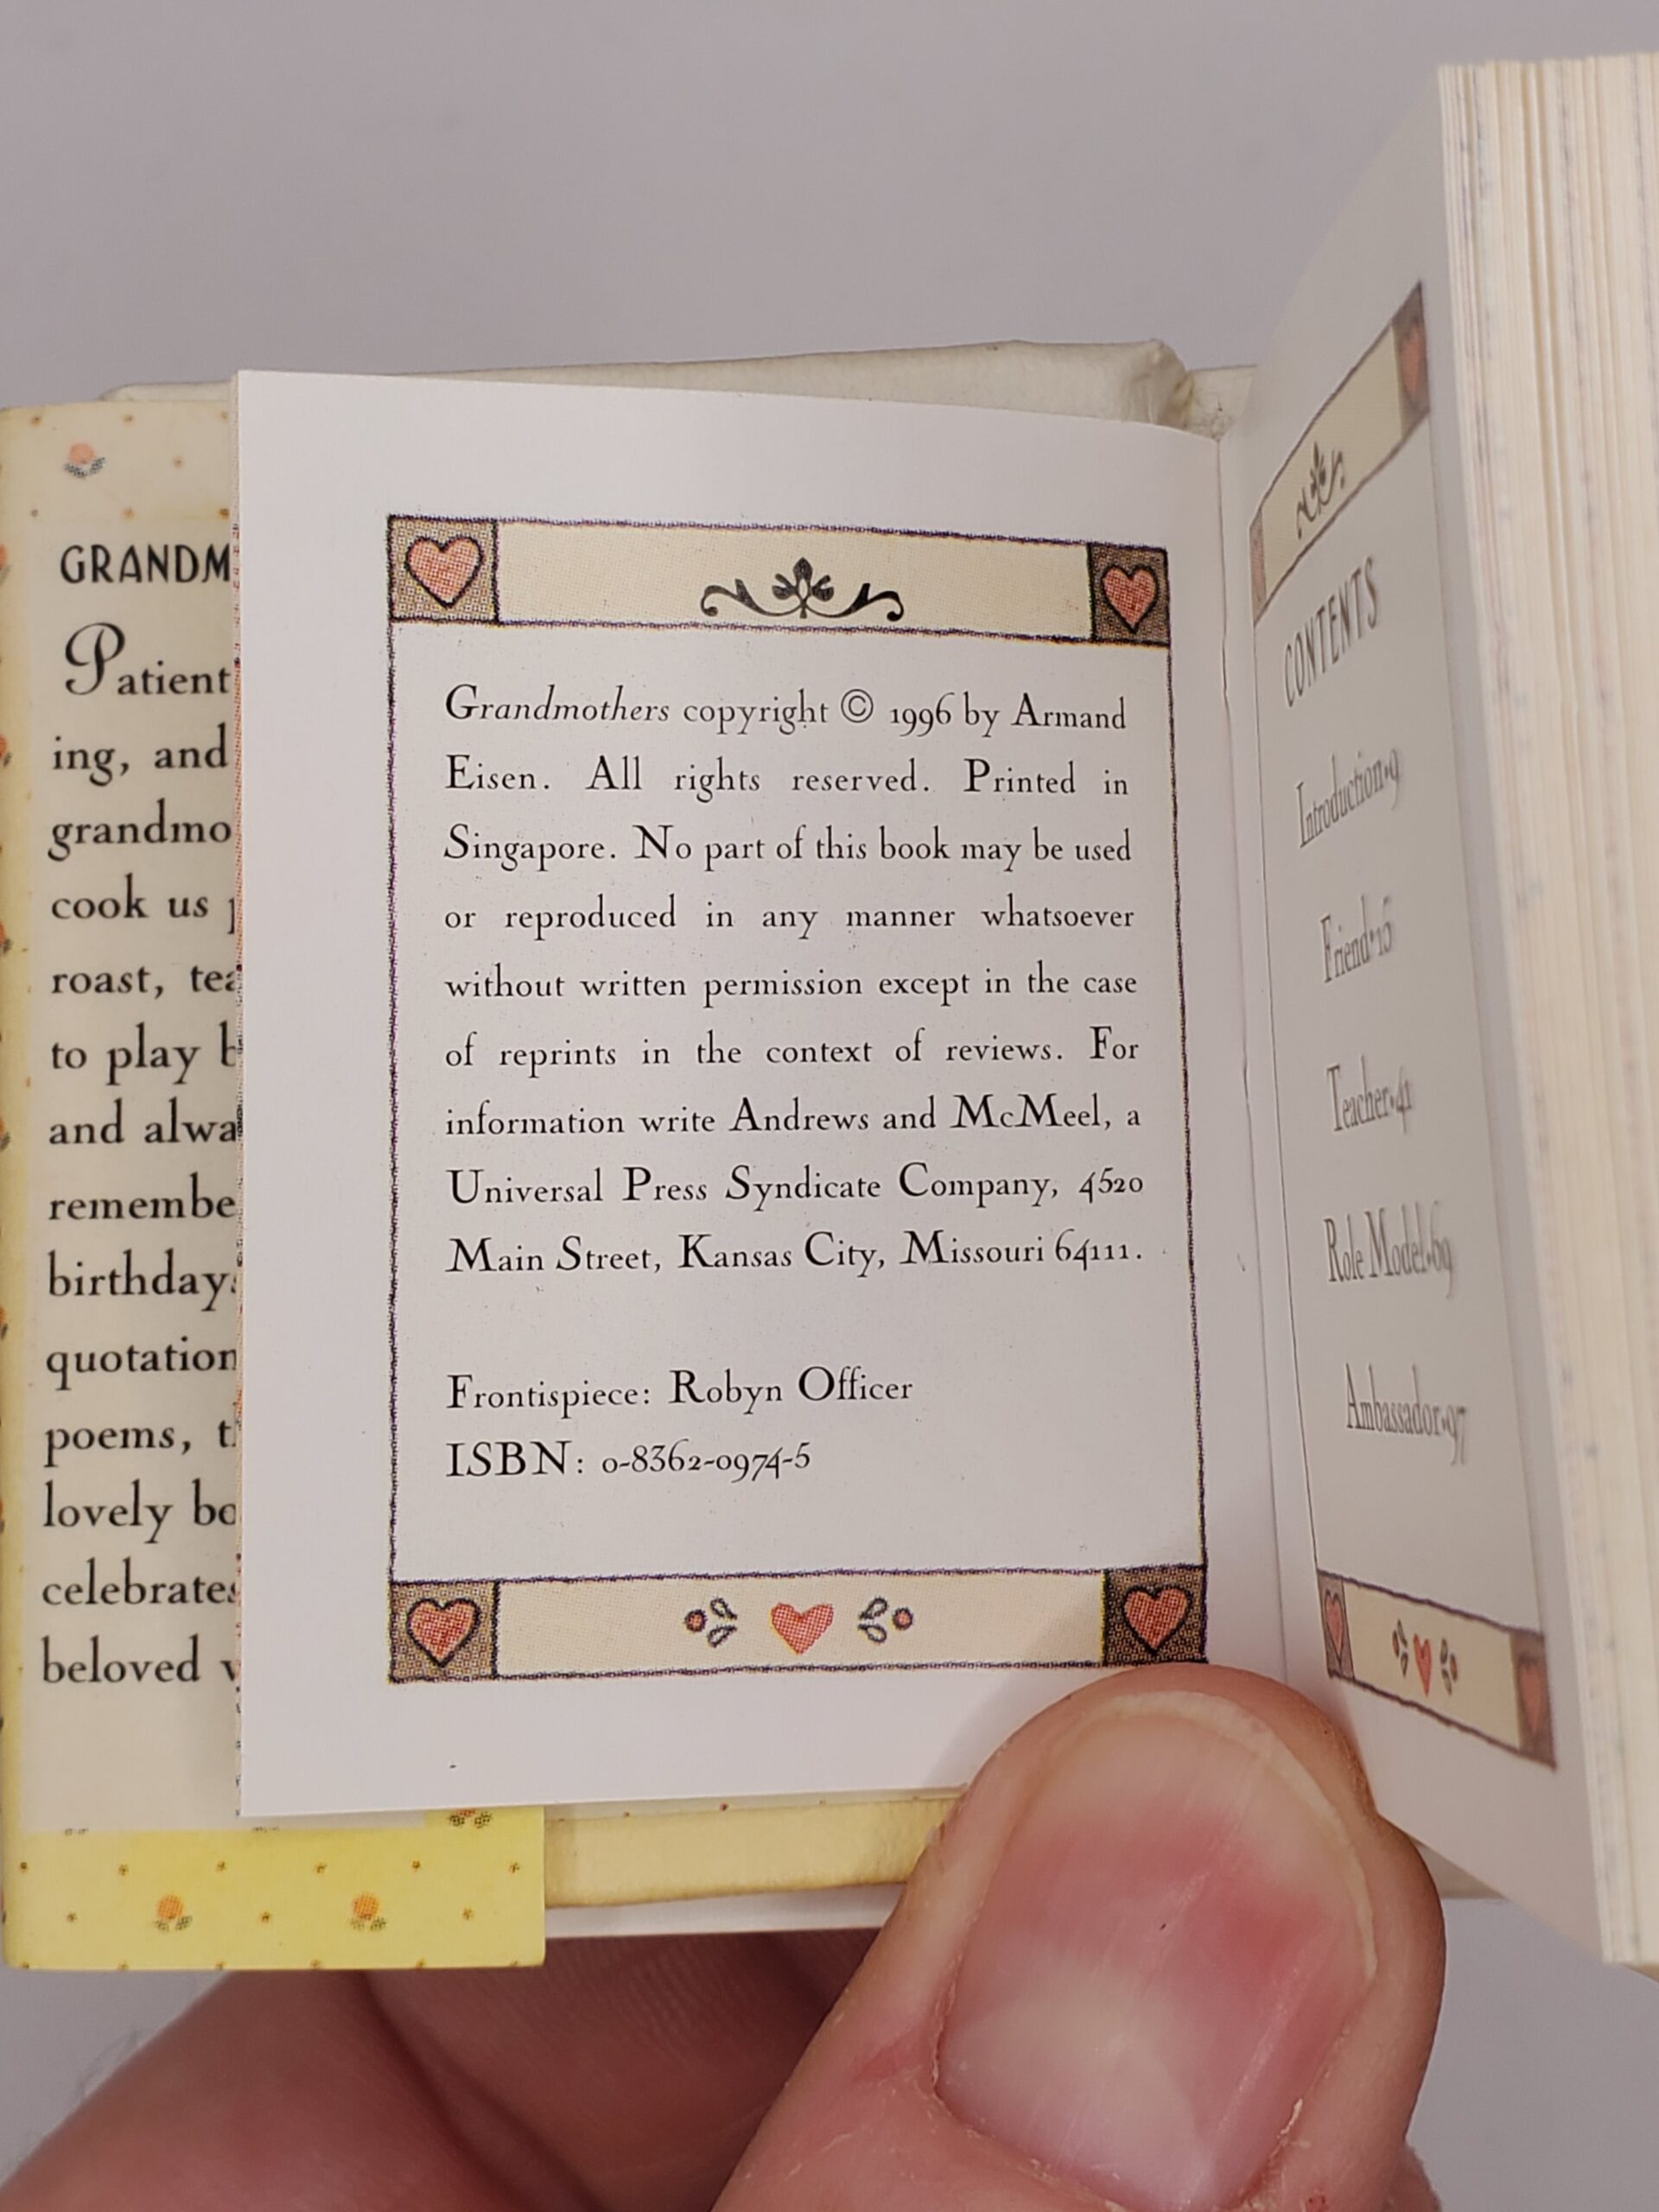 GRANDM
Patient
ing, and
grandmo
cook us
roast, tea
to play
and alwa
remembe
birthday
quotation
poems,
lovely bo
celebrates
beloved
Grandmothers copyright © 1996 by Armand
Eisen. All rights reserved. Printed in
Singapore. No part of this book may be used
or reproduced in any manner whatsoever
without written permission except in the case
of reprints in the context of reviews. For
information write Andrews and McMeel, a
Universal Press Syndicate Company, 4520
Main Street, Kansas City, Missouri 64111.
Frontispiece: Robyn Officer
ISBN: 0-8362-0974-5
CONTENTS
Introduction•9
Friend•15
Teacher•41
Role Model•69
Ambassador•97